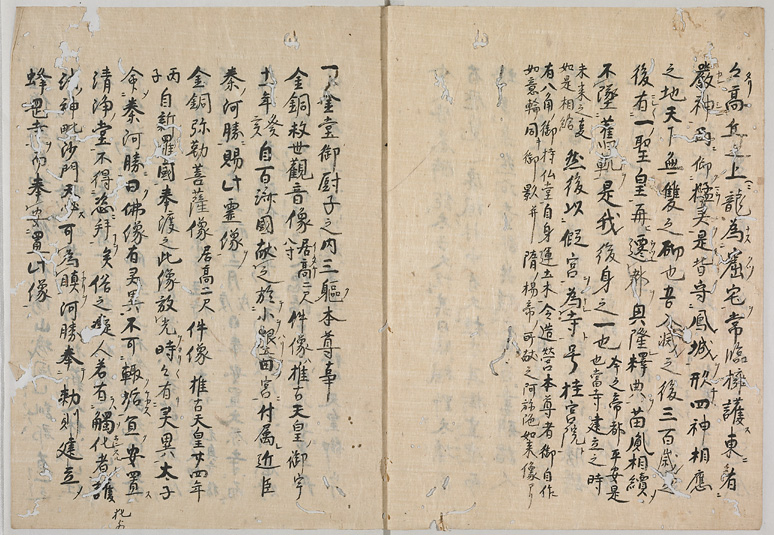 々高丘之上龍為窟宅常臨擁護東有
嚴神 仰 是昔守鳳城形四神相應
之地天下無雙之砌也吾入滅之後三百歳之
後有一聖皇再遷都興隆釋典苗胤相續
不墜舊軌是我後身之一也 今之帝都平安是也當寺建立之時
未来之 如是相給 然後以假宮為寺号桂宮院
有八角御持仏堂自身運土木令造営本尊者御自作
如意輪同御影并隋楊帝所献之阿弥陀如来像
一金堂御厨子之内三躯本尊事
金銅救世觀音像 居高二尺 件像推古天皇御宇
十一年癸亥自百済國献之於小墾田宮付属近臣
秦河勝賜此霊像
金銅弥勒菩薩像 居高二尺 件像推古天皇廿四年
丙子自新羅國奉渡之此像放光時々有灵異太子
命秦河勝曰佛像有灵異不可輙垢宜安置
清浄堂不得恣拜矣俗之癡人若有觸化者護
法神毗沙門天 可為瞋河勝奉勅則建立
蜂 奉安置此像